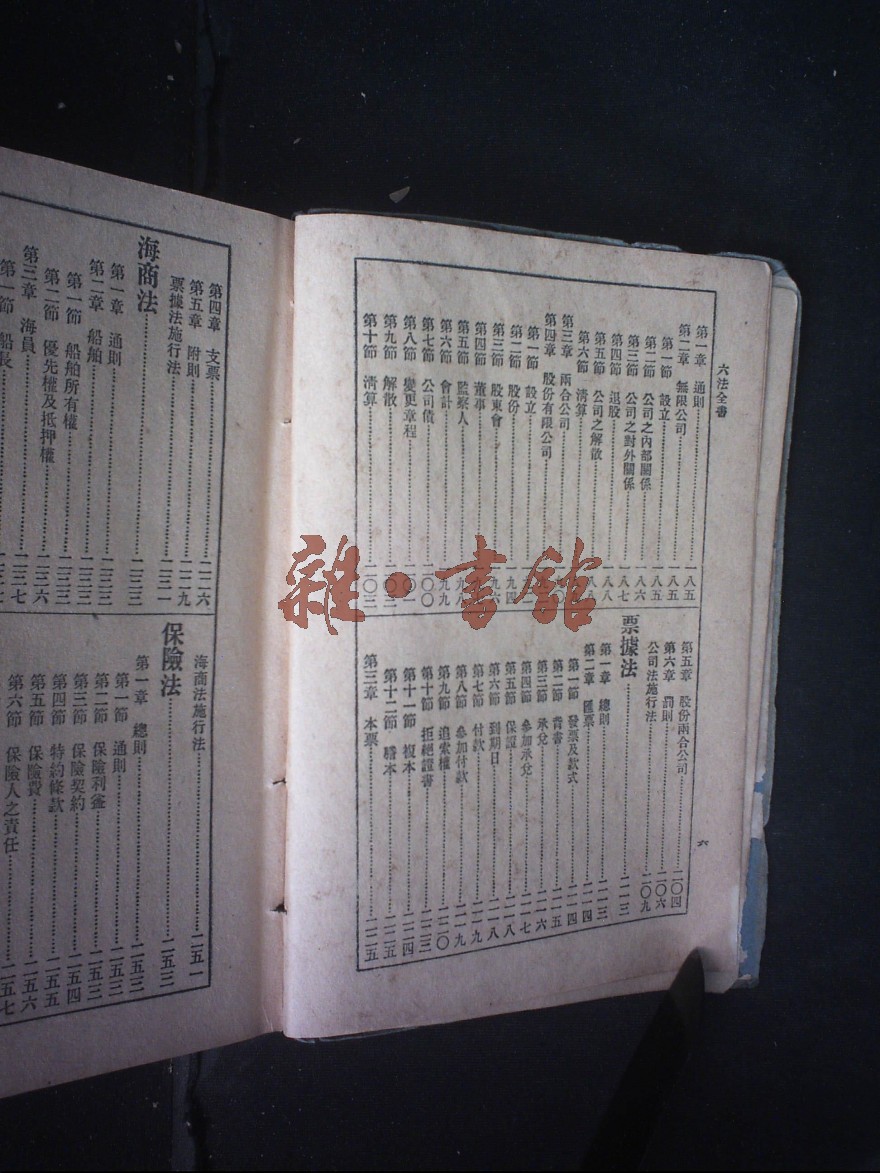 六法全書
第一章 通則……八五
第二章 無限公司……八五
第一節 設立……八五
第二節 公司之內部關係……八五
第三節 公司之對外關係……八六
第四節 退股……八七
第五節 公司之解散……八八
第六節 清算……八八
第三章 兩合公司……
第四章 股份有限公司……
第一節 設立……
第二節 股份……九四
第三節 股東會……九六
第四節 董事……
第五節 監察人……九八
第六節 會計……九九
第七節 公司債……一〇〇
第八節 變更章程……
第九節 解散……
第十節 清算……一〇三
第五章 股份兩合公司……一〇四
第六章 罰則……一〇六
公司法施行法……一〇九
票據法……一一三
第一章 總則……一一三
第二章 匯票……一一四
第一節 發票及款式……一一四
第二節 背書……一一五
第三節 承兌……一一六
第四節 參加承兌……一一七
第五節 保證……一一八
第六節 到期日……一一八
第七節 付款……一一九
第八節 參加付款……一一九
第九節 追索權……一二〇
第十節 拒絕證書……一二三
第十一節 複本……一二四
第十二節 謄本……一二五
第三章 本票……一二五
六
第四章 支票……一二六
第五章 附則……一二九
票據法施行法……一三一
海商法……一三三
第一章 通則……一三三
第二章 船舶……一三三
第一節 船舶所有權……一三三
第二節 優先權及抵押權……一三六
第三章 海員……一三七
第一節 船長……一三七
海商法施行法……一五一
保險法……一五三
第一章 總則……一五三
第一節 通則……一五三
第二節 保險利益……一五三
第三節 保險契約……一五四
第四節 特約條款……一五五
第五節 保險費……一五六
第六節 保險人之責任……一五七
雜·書館